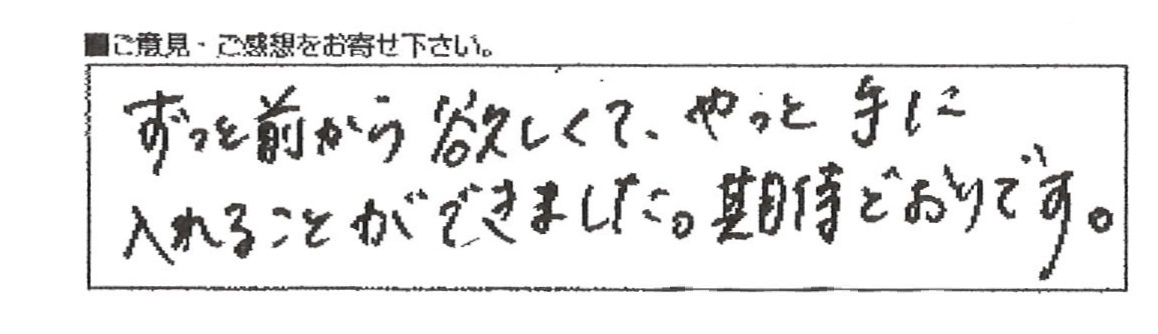 ■ご意見・ご感想をお寄せ下さい。
ずっと前から欲しくて、やっと手に
入れることができました。期待どおりです。